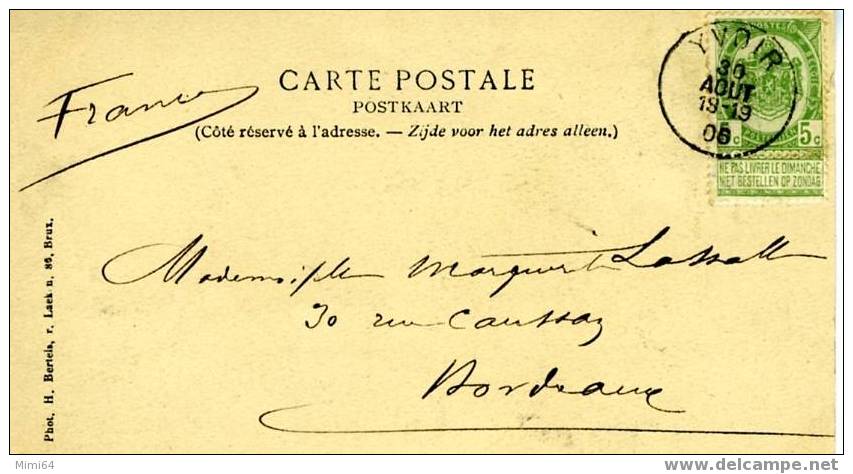 CARTE POSTALE
POSTKAART
(Côté réservé à l'adresse. — Zijde voor het adres alleen.)
France
YVOIR
30
AOUT
19-19
06
POSTES
5c 5c
NE PAS LIVRER LE DIMANCHE
NIET BESTELLEN OP ZONDAG
Mademoiselle Marguerite Lassalle
30 rue Caussan
Bordeaux
Phot. H. Bertels, r. Laek n. 86, Brux.
Mimi64
www.delcampe.net